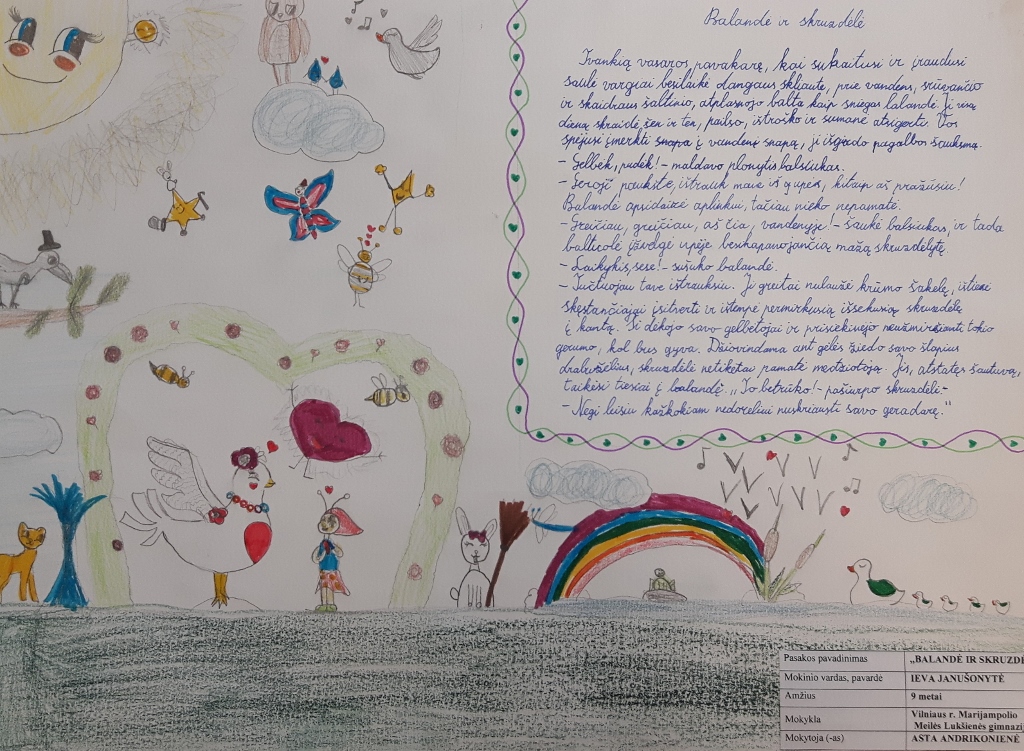 Balandė ir skruzdėlė
Tvankią vasaros pavakarę, kai sukaitusi ir įraudusi
saulė vargiai besilaikė dangaus skliaute, prie vandens, sriūvančio
ir skaidraus šaltinio, atplasnojo balta kaip sniegas balandė. Ji visą
dieną skraidė šen ir ten, pailso, ištroško ir sumanė atsigerti. Vos
spėjusi įmerkti snapą į vandenį snapą, ji išgirdo pagalbos šauksmą.
– Gelbėk, padėk! – maldavo plonytis balsiukas.
– Geroji paukšte, ištrauk mane iš upės, kitaip aš pražūsiu!
Balandė apsidairė aplinkui, tačiau nieko nepamatė.
– Greičiau, greičiau, aš čia, vandenyje! – šaukė balsiukas, ir tada
baltuolė įžvelgė upėje besikapanojančią mažą skruzdėlytę.
– Laikykis, sese! – sušuko balandė.
– Tučtuojau tave ištrauksiu. Ji greitai nulaužė krūmo šakelę, ištiesė
skęstančiajai įsitverti ir ištempė permirkusią išsekusią skruzdėlę
į krantą. Ši dėkojo savo gelbėtojai ir prisiekinėjo neužmiršianti tokio
gerumo, kol bus gyva. Džiovindama ant gėlės žiedo savo šlapius
drabužėlius, skruzdėlė netikėtai pamatė medžiotoją. Jis, atstatęs šautuvą,
taikėsi tiesiai į balandę. „To betrūko! – pašiurpo skruzdėlė. –
– Negi leisiu kažkokiam nedorėliui nuskriausti savo geradarę."
Pasakos pavadinimas „BALANDĖ IR SKRUZDĖ
Mokinio vardas, pavardė IEVA JANUŠONYTĖ
Amžius 9 metai
Mokykla Vilniaus r. Marijampolio
Meilės Lukšienės gimnazi
Mokytoja (-as) ASTA ANDRIKONIENĖ